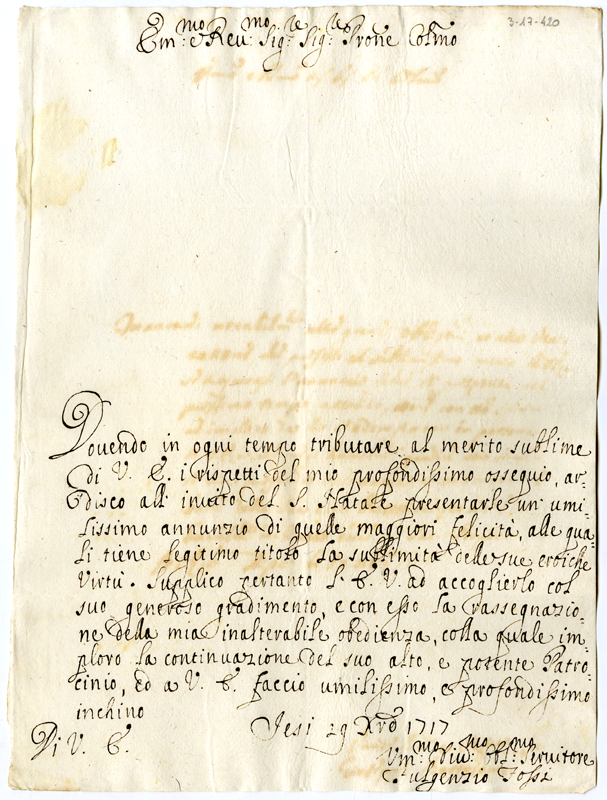 3-17-420
Em:mo e Reu:mo Sig:re Sig:re Prone Colmo
Dovendo in ogni tempo tributare al merito sublime
di V. E. i rispetti del mio profondissimo ossequio, ar-
disco all' inuito del S. Natale presentarle un' umi-
lissimo annunzio di quelle maggiori felicità, alle qua-
li tiene legitimo titolo la sublimità delle sue eroiche
Virtù. Supplico pertanto l' E. V. ad accoglierlo col
suo generoso gradimento, e con esso la rassegnazio-
ne della mia inalterabile obedienza, colla quale im-
ploro la continuazione del suo alto, e potente Patro-
cinio, ed a V. E. faccio umilissimo, e profondissimo
inchino
Jesi 29 Xrē 1717
Di V. E.
Um:mo Diu:mo Obl:mo Seruitore
Fulgenzio Fossi